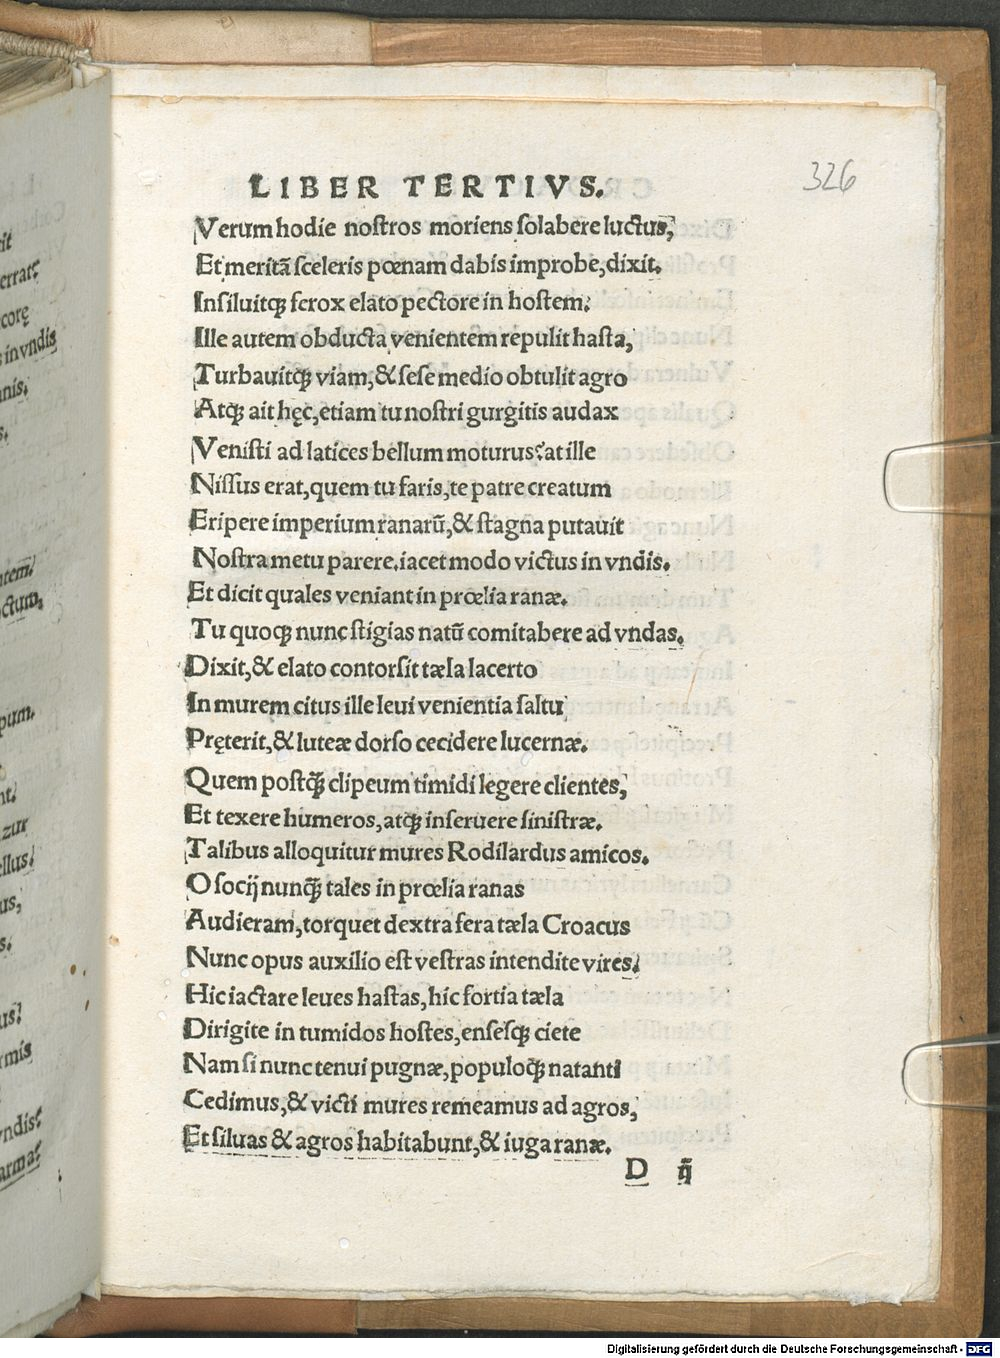 326
LIBER TERTIVS.
Verum hodie nostros moriens solabere luctus,
Et meritã sceleris pœnam dabis improbe, dixit.
Insiluitqꝫ ferox elato pectore in hostem.
Ille autem obducta venientem repulit hasta,
Turbauitqꝫ viam, & sese medio obtulit agro
Atqꝫ ait hęc, etiam tu nostri gurgitis audax
Venisti ad latices bellum moturus? at ille
Nissus erat, quem tu faris, te patre creatum
Eripere imperium ranarũ, & stagna putauit
Nostra metu parere. iacet modo victus in vndis.
Et dicit quales veniant in prœlia ranæ.
Tu quoqꝫ nunc stigias natũ comitabere ad vndas.
Dixit, & elato contorsit tæla lacerto
In murem citus ille leui venientia saltu
Pręterit, & luteæ dorso cecidere lucernæ.
Quem postqꝫ̃ clipeum timidi legere clientes,
Et texere humeros, atqꝫ inseruere sinistræ.
Talibus alloquitur mures Rodilardus amicos.
O socij nunqꝫ̃ tales in prœlia ranas
Audieram, torquet dextra fera tæla Croacus
Nunc opus auxilio est vestras intendite vires.
Hic iactare leues hastas, hic fortia tæla
Dirigite in tumidos hostes, ensesqꝫ ciete
Nam si nunc tenui pugnæ, populoqꝫ natanti
Cedimus, & victi mures remeamus ad agros,
Et siluas & agros habitabunt, & iuga ranæ.
D ij̃
it
errat?
corę
s in vndis
nis.
s.
ntem.
ctum.
pum.
nt.
zur
ellus.
us,
s.
us?
rmis
vndis?
arma?
Digitalisierung gefördert durch die Deutsche Forschungsgemeinschaft - DFG